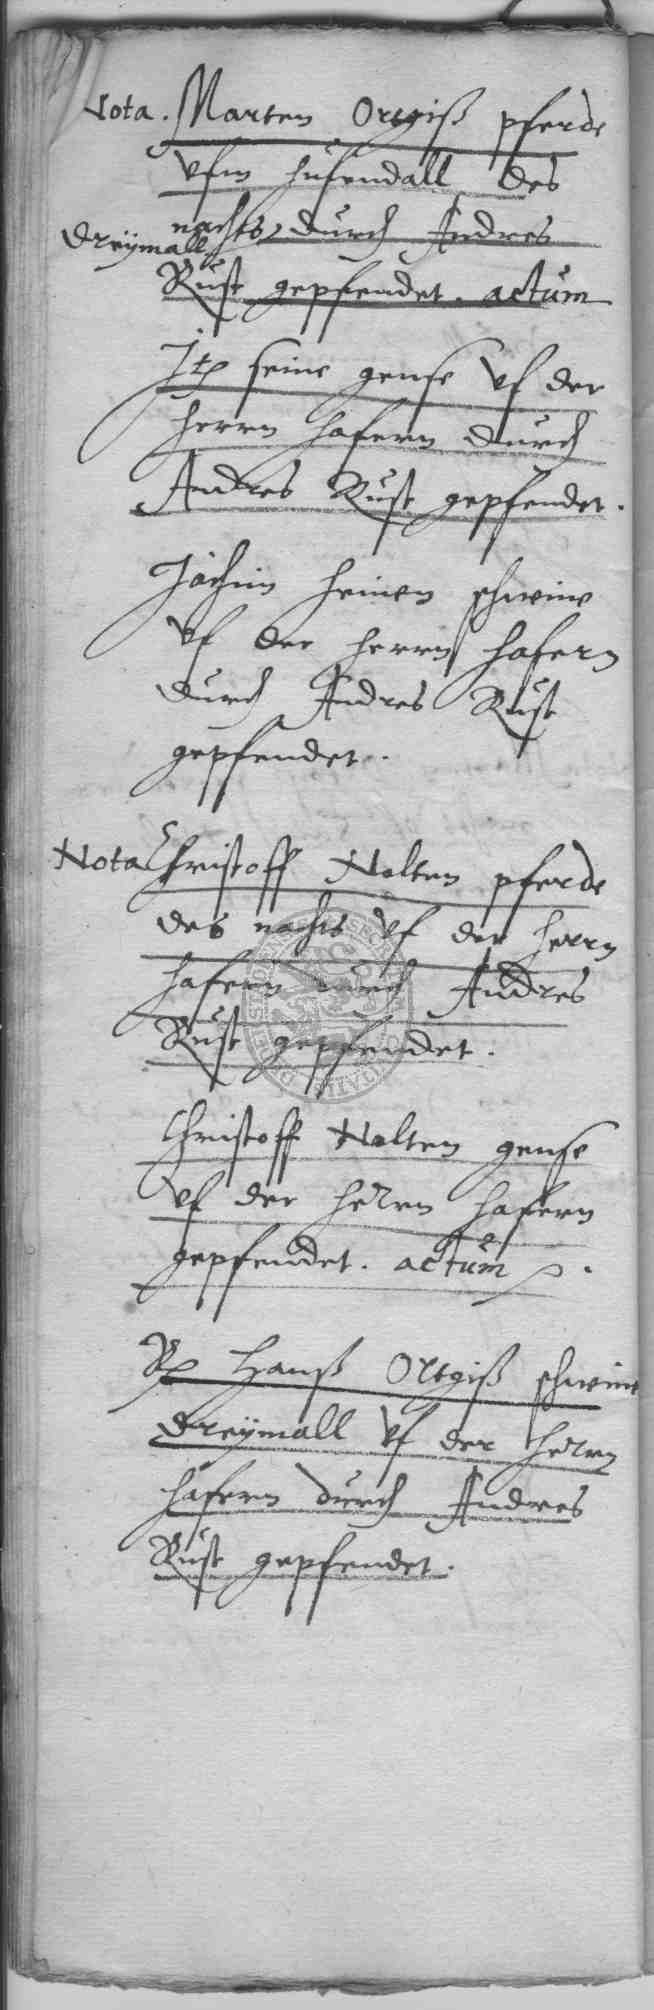 Nota. Marten Ortgiß pferde
vfm hufendall des
nachts durch Andres
dreÿmall
Rust gepfendet. actum
Itp seine gense vf der
herrn hafern durch
Andres Rust gepfendet.
Jochim heinen schweine
vf der herrn hafern
durch Andres Rust
gepfendet.
Nota Christoff Nolten pferde
des nachts vf der herrn
hafern durch Andres
Rust gepfendet.
Christoff Nolten gense
vf der herrn hafern
gepfendet. actum
Hanß Ortgiß schweine
dreÿmall vf der herrn
hafern durch Andres
Rust gepfendet.